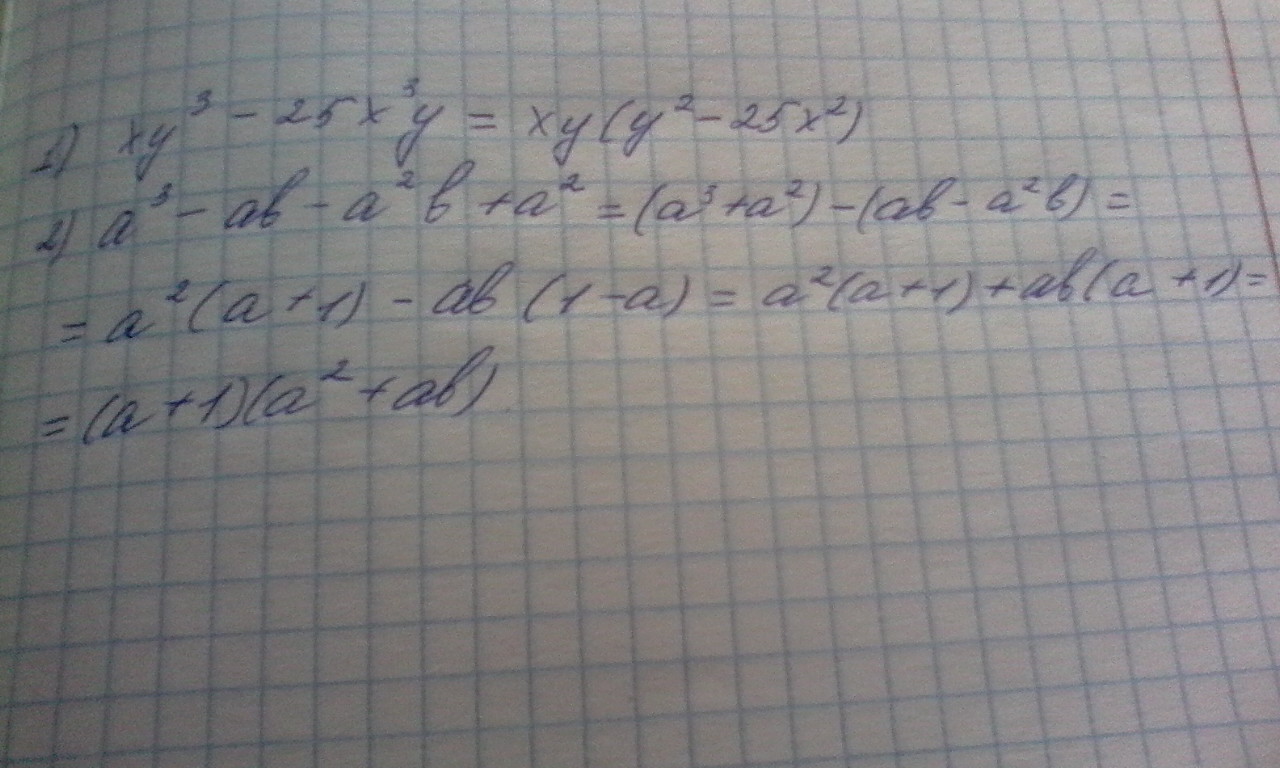 1) xy³ - 25x³y = xy(y² - 25x²)
2) a³ - ab - a²b + a² = (a³ + a²) - (ab - a²b) =
= a²(a + 1) - ab(1 - a) = a²(a + 1) + ab(a + 1) =
= (a + 1)(a² + ab)